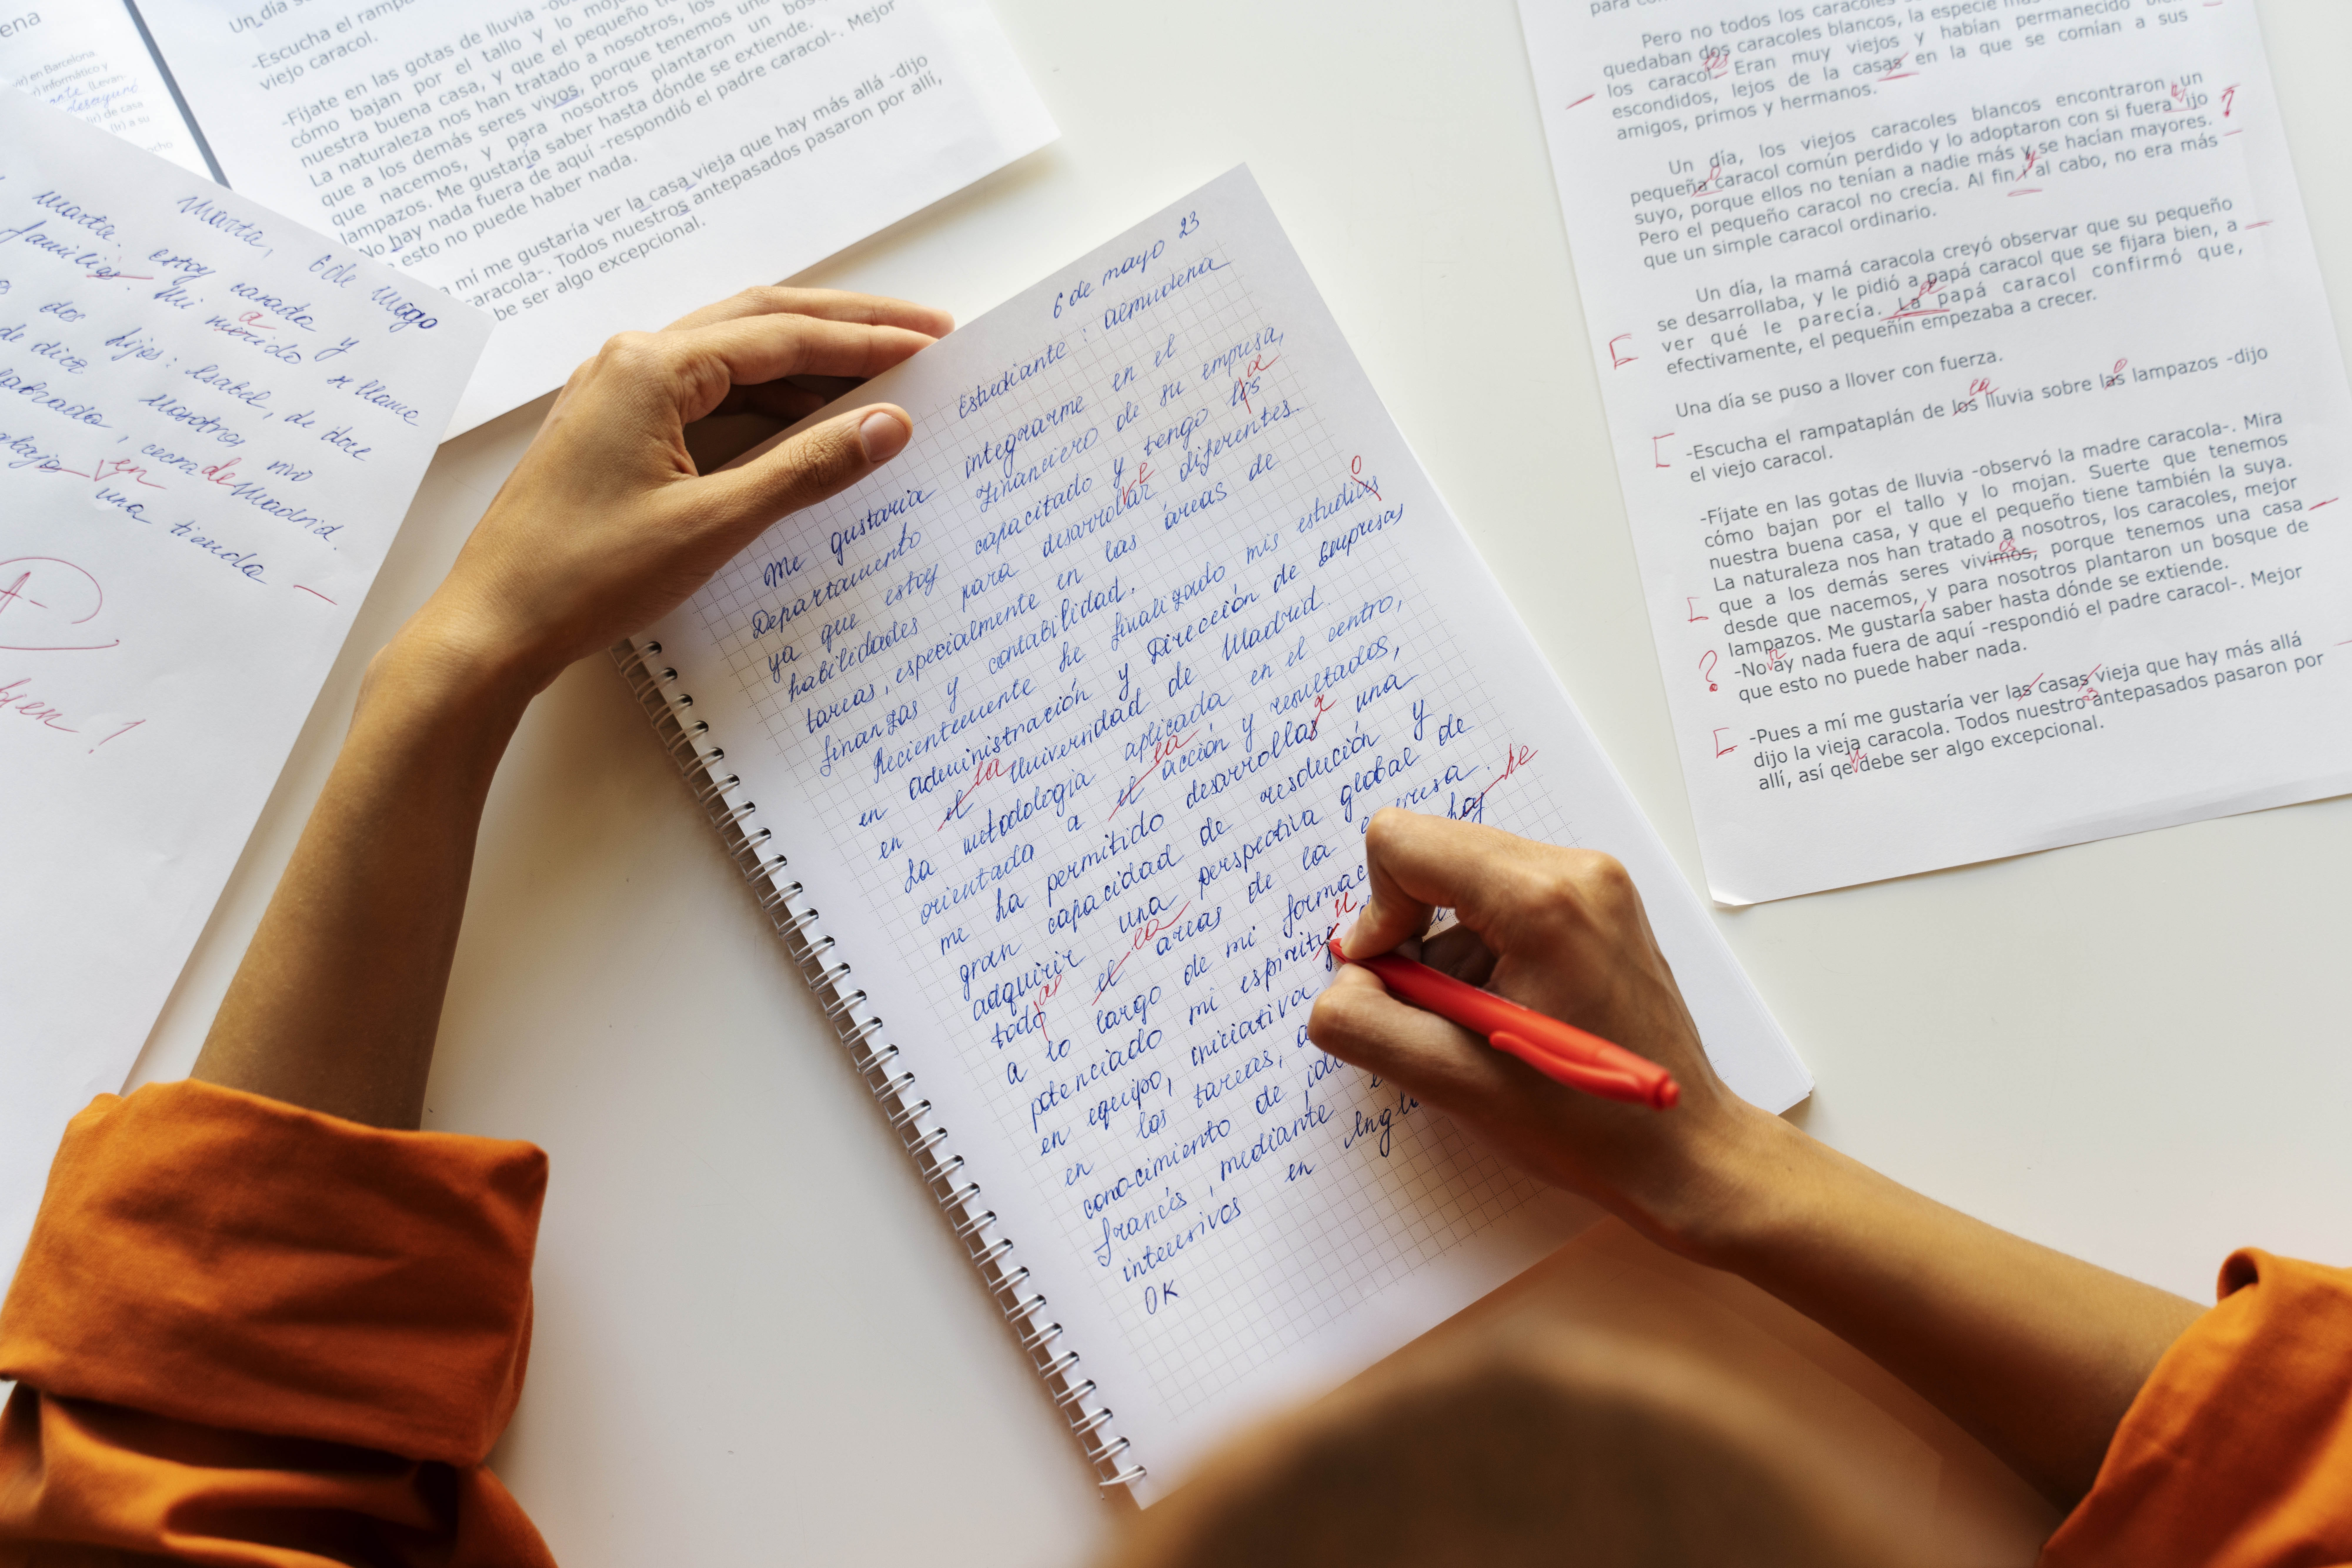 ena
vir) en Barcelona
r) informático y
ante. (Levan-
desayunó
(ir) de casa
(Ir) a su
ocho
Un día s
-Escucha el rampa
viejo caracol.
-Fíjate en las gotas de lluvia -ob
cómo bajan por el tallo y lo moja
nuestra buena casa, y que el pequeño
La naturaleza nos han tratado a nosotros, los
que a los demás seres vivos, porque tenemos una
que nacemos, y para nosotros plantaron un bos
lampazos. Me gustaría saber hasta dónde se extiende.
No hay nada fuera de aquí -respondió el padre caracol-. Mejor
esto no puede haber nada.
a mí me gustaría ver la casa vieja que hay más allá -dijo
caracola-. Todos nuestros antepasados pasaron por allí,
be ser algo excepcional.
Marta, 6 de mayo
Marta. estoy casada y
familiar. Mi morido se llame
a
dos hijos: Isabel, de doce
de diez Nosotros
labrado, cerca de Madrid.
en
una tienda
A-
bien!
6 de mayo 23
Estudiante: almudena
Me gustaria integrarme en el
Departamento Financiero de su empresa,
ya que estoy capacitado y tengo los
a
habilidades para desarrollar diferentes
tareas, especialmente en las áreas de
finanzas y contabilidad.
Recientemente he finalizado mis estudias
o
en administración y Dirección de Empresas
en el Universidad de Madrid.
la
La metodologia aplicada en el centro,
orientada a el acción y resultados,
la
me ha permitido desarrollas una
r
gran capacidad de resolución y
adquirir una perspectiva global de
todo el areas de la empresa.
as la
a lo largo de mi formac hay
he
potenciado mi espirity
u
en equipo, iniciativa
en las tareas, a
conocimiento de idi
francés, mediante
intensivos en Ingl
OK
para co
Pero no todos los caracoles
quedaban dos caracoles blancos, la especie más
los caracol. Eran muy viejos y habían permanecido bien
escondidos, lejos de la casas en la que se comían a sus
amigos, primos y hermanos.
Un día, los viejos caracoles blancos encontraron un
pequeña caracol común perdido y lo adoptaron con si fuera ijo
suyo, porque ellos no tenían a nadie más y se hacían mayores.
Pero el pequeño caracol no crecía. Al fin y al cabo, no era más
que un simple caracol ordinario.
Un día, la mamá caracola creyó observar que su pequeño
se desarrollaba, y le pidió a papá caracol que se fijara bien, a
ver qué le parecía. La papá caracol confirmó que,
efectivamente, el pequeñín empezaba a crecer.
Una día se puso a llover con fuerza.
-Escucha el rampataplán de los lluvia sobre las lampazos -dijo
la o
el viejo caracol.
-Fíjate en las gotas de lluvia -observó la madre caracola-. Mira
cómo bajan por el tallo y lo mojan. Suerte que tenemos
nuestra buena casa, y que el pequeño tiene también la suya.
La naturaleza nos han tratado a nosotros, los caracoles, mejor
que a los demás seres vivimos, porque tenemos una casa
desde que nacemos, y para nosotros plantaron un bosque de
lampazos. Me gustaría saber hasta dónde se extiende.
? -No ay nada fuera de aquí -respondió el padre caracol-. Mejor
que esto no puede haber nada.
-Pues a mí me gustaría ver las casas vieja que hay más allá
dijo la vieja caracola. Todos nuestro antepasados pasaron por
s
allí, así qe debe ser algo excepcional.